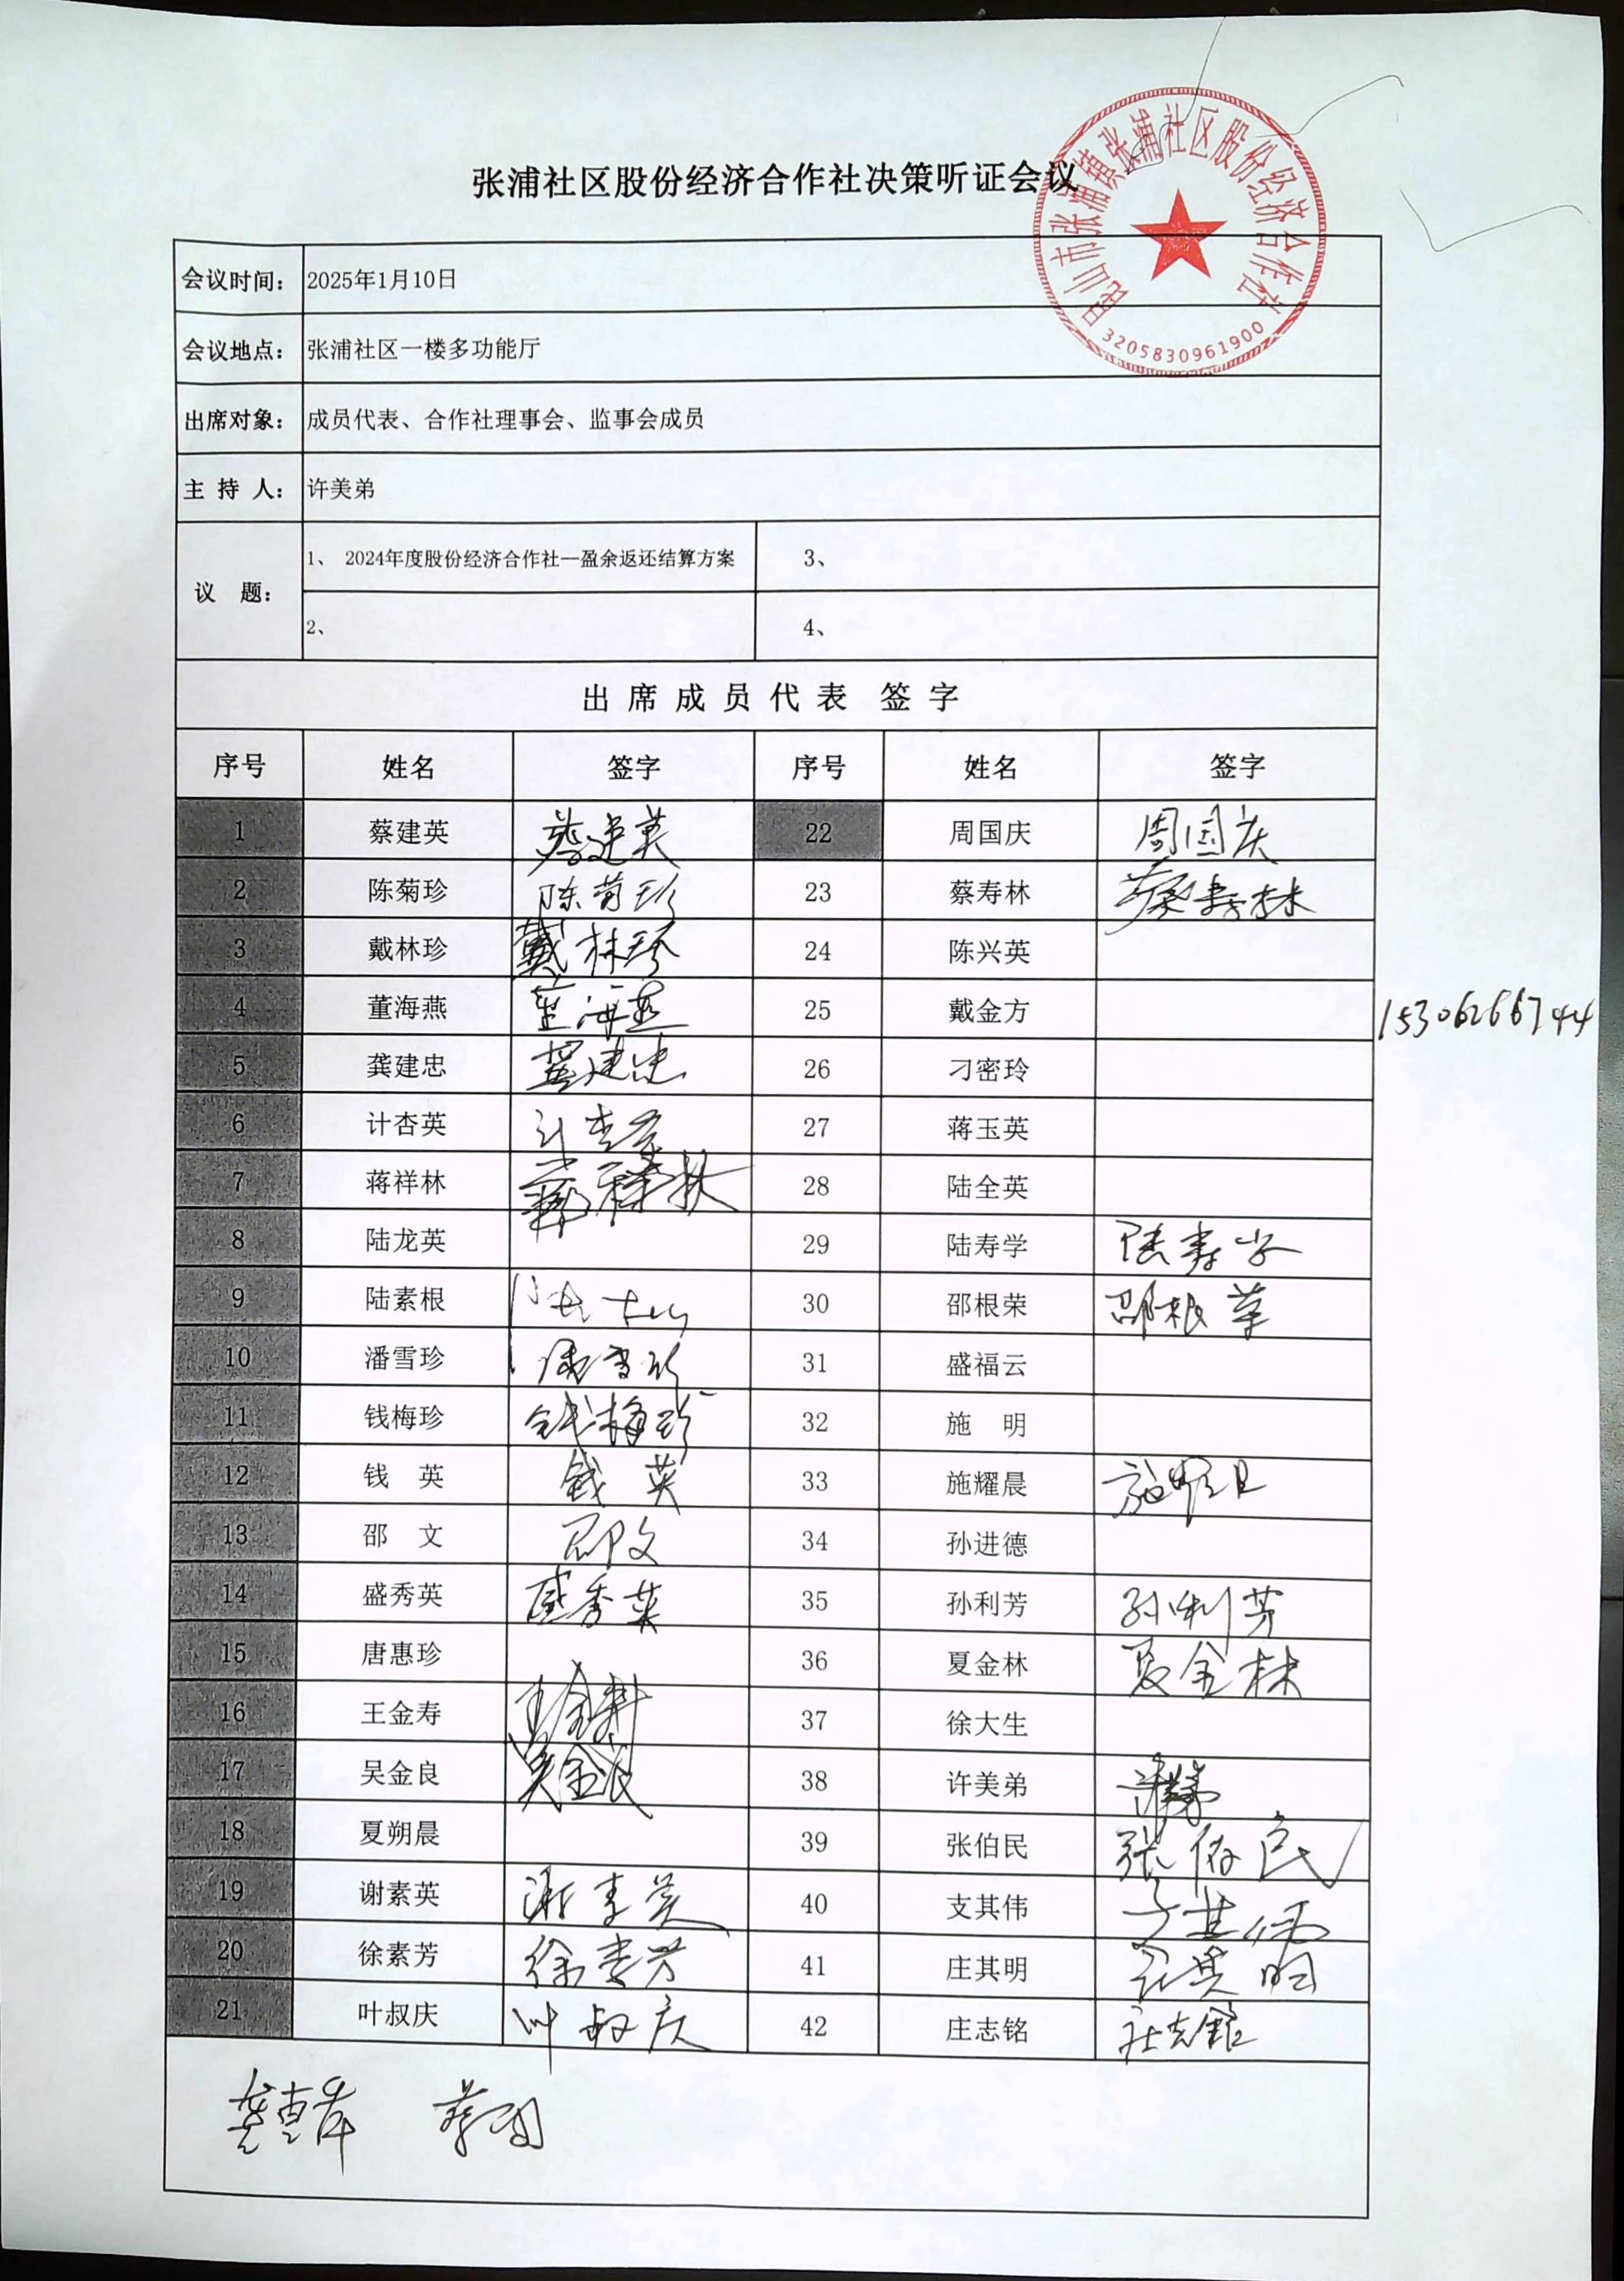 张浦社区股份经济合作社决策听证会议
昆山市张浦镇张浦社区股份经济合作社
3205830961900
会议时间： 2025年1月10日
会议地点： 张浦社区一楼多功能厅
出席对象： 成员代表、合作社理事会、监事会成员
主 持 人： 许美弟
议 题： 1、 2024年度股份经济合作社—盈余返还结算方案 3、
2、 4、
出 席 成 员 代 表 签 字
序号 姓名 签字 序号 姓名 签字
1 蔡建英 蔡建英 22 周国庆 周国庆
2 陈菊珍 陈菊珍 23 蔡寿林 蔡寿林
3 戴林珍 戴林珍 24 陈兴英
4 董海燕 董海燕 25 戴金方 15306266744
5 龚建忠 龚建忠 26 刁密玲
6 计杏英 计杏英 27 蒋玉英
7 蒋祥林 蒋祥林 28 陆全英
8 陆龙英 29 陆寿学 陆寿学
9 陆素根 30 邵根荣 邵根荣
10 潘雪珍 潘雪珍 31 盛福云
11 钱梅珍 钱梅珍 32 施 明
12 钱 英 钱 英 33 施耀晨 施耀晨
13 邵 文 邵文 34 孙进德
14 盛秀英 盛秀英 35 孙利芳 孙利芳
15 唐惠珍 36 夏金林 夏金林
16 王金寿 王金寿 37 徐大生
17 吴金良 吴金良 38 许美弟 许美弟
18 夏朔晨 39 张伯民 张伯民
19 谢素英 谢素英 40 支其伟 支其伟
20 徐素芳 徐素芳 41 庄其明 庄其明
21 叶叔庆 叶叔庆 42 庄志铭 庄志铭